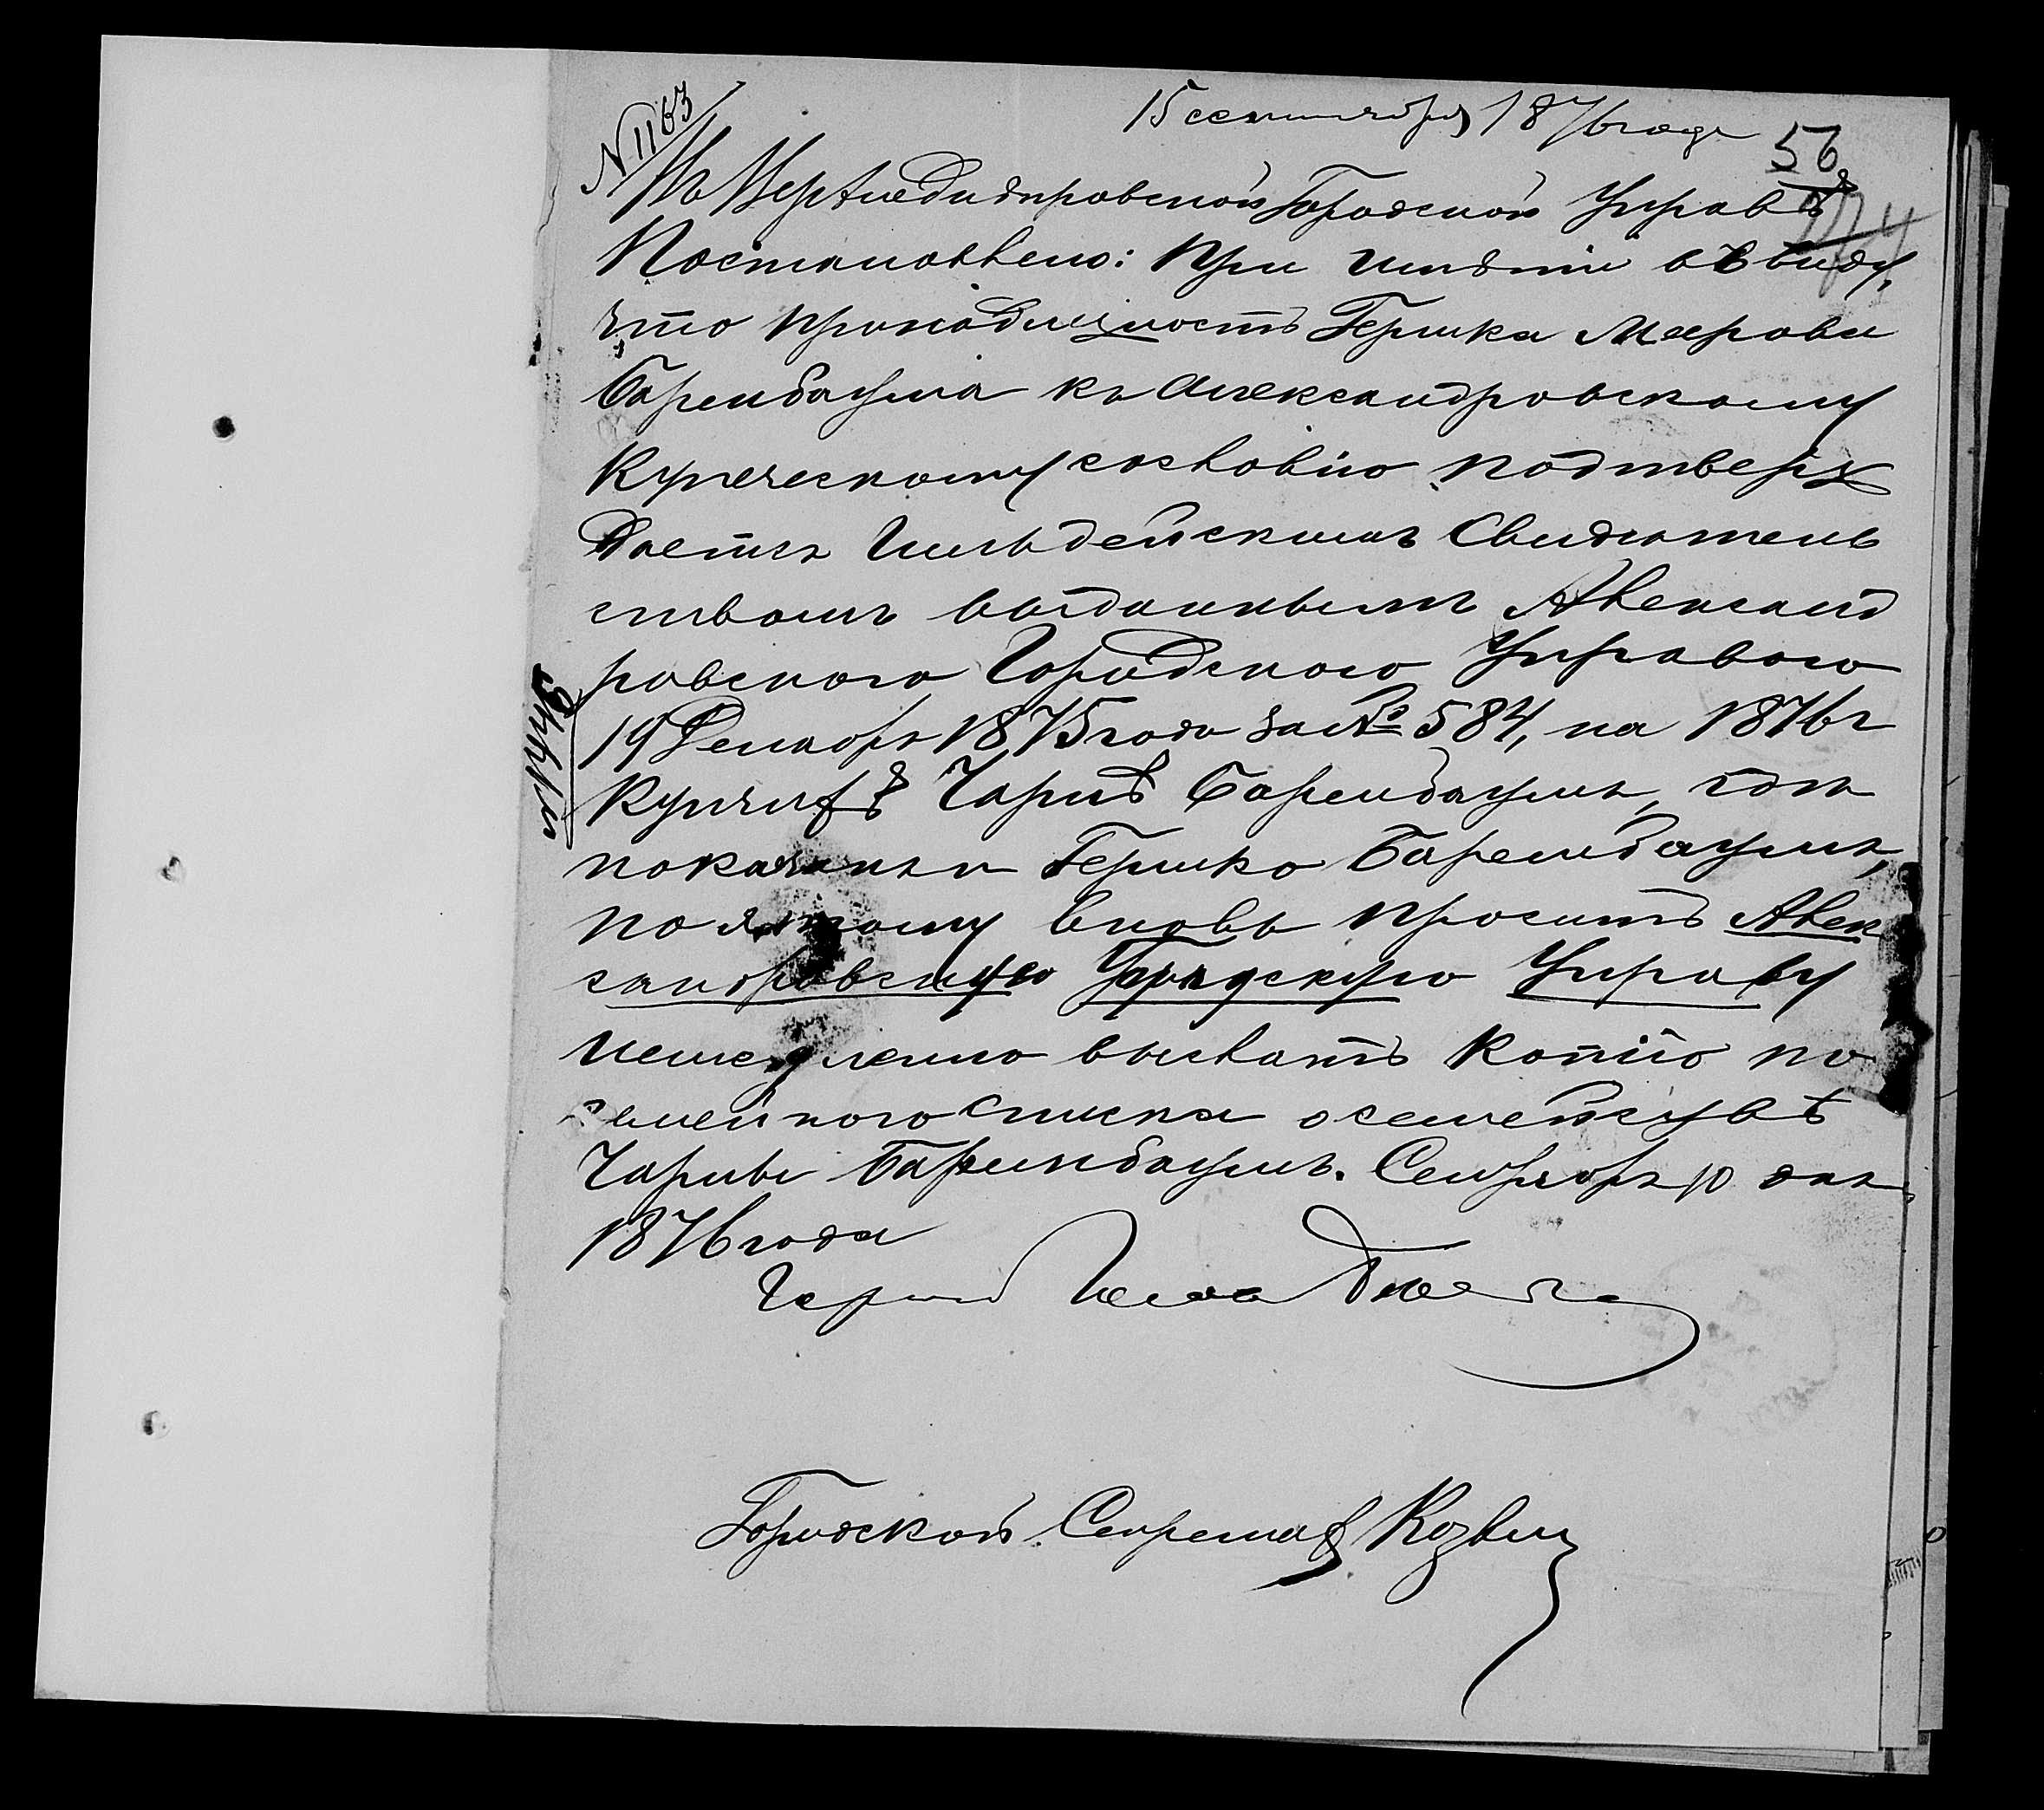 N 1163
15 сентября 1876 года
56
Въ Верхнеднѣпровской Городской Управѣ
Постановлено: При имѣніи въ виду,
что принадлежность Гершка Меерова
Баренбаума къ Александровскому
Купеческому сословію подтверж
дается Гильдейскимъ Свидѣтель
ствомъ выданнымъ Александ
ровскою Городскою Управою
19 Декабря 1875 года за № 584, на 1876 г
Купчихѣ Чарнѣ Баренбаумъ, гдѣ
показанъ и Гершко Баренбаумъ,
по этому вновь просить Алек
сандровскую Городскую Управу
немедленно выслать копію по
семейного списка о семействѣ
Чарны Баренбаумъ. Сентября 10 дня
1876 года
Городской Секретарь